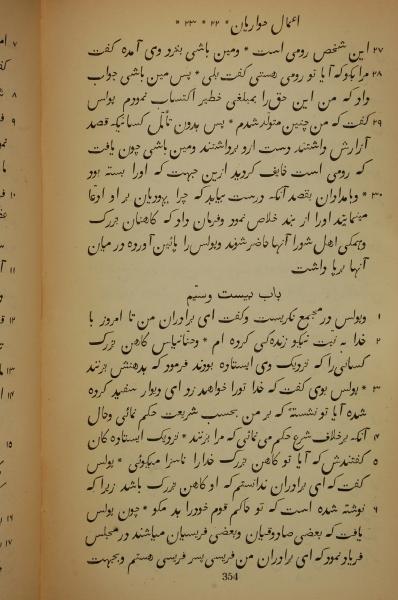 اعمال حواریان * ۲۲ * ۲۳ *
۲۷ این شخص رومی است * ومین باشی بنزد وی آمده کفت
۲۸ مرا بکو که آیا تو رومی هستی کفت بلی * پس مین باشی جواب
داد که من این حق را بمبلغی خطیر اکتساب نمودم پولس
۲۹ کفت که من چنین متولد شدم * پس بدون تأمّل کسانیکه قصد
آزارش داشتند دست ازو برداشتند ومین باشی چون یافت
که رومی است خایف کردید ازین جهت که اورا بسته بود
۳۰ * وبامدادان بقصد آنکه درست بیابد که چرا یهودیان بر او ادّعا
مینمایند اورا از بند خلاص نمود وفرمان داد که کاهنان بزرک
وهمکی اهل شورا آنها حاضر شوند وپولس را پائین آورده در میان
آنها برپا داشت
باب بیست وسیّم
۱ وپولس در مجمع نکریست وکفت ای برادران من تا امروز با
۲ خدا به نیت نیکو زنده‌کی کرده ام * وحنّانیاس کاهن بزرک
کسانی را که نزدیک وی ایستاده بودند فرمود که بدهنش بزنند
۳ * پولس بوی کفت که خدا تورا خواهد زد ای دیوار سفید کرده
شده آیا تو نشسته که بر من بحسب شریعت حکم نمائی وحال
۴ آنکه برخلاف شرع حکم می نمائی که مرا بزنند * نزدیک ایستاده کان
۵ کفتندش که آیا تو کاهن بزرک خدارا ناسزا میکوئی * پولس
کفت که ای برادران ندانستم که او کاهن بزرک باشد زیرا که
۶ نوشته شده است که تو حاکم قوم خودرا بد مکو * چون پولس
یافت که بعضی صادوقیان وبعضی فریسیان میباشند در مجلس
فریاد نمود که ای برادران من فریسی پسر فریسی هستم وبجهت
354